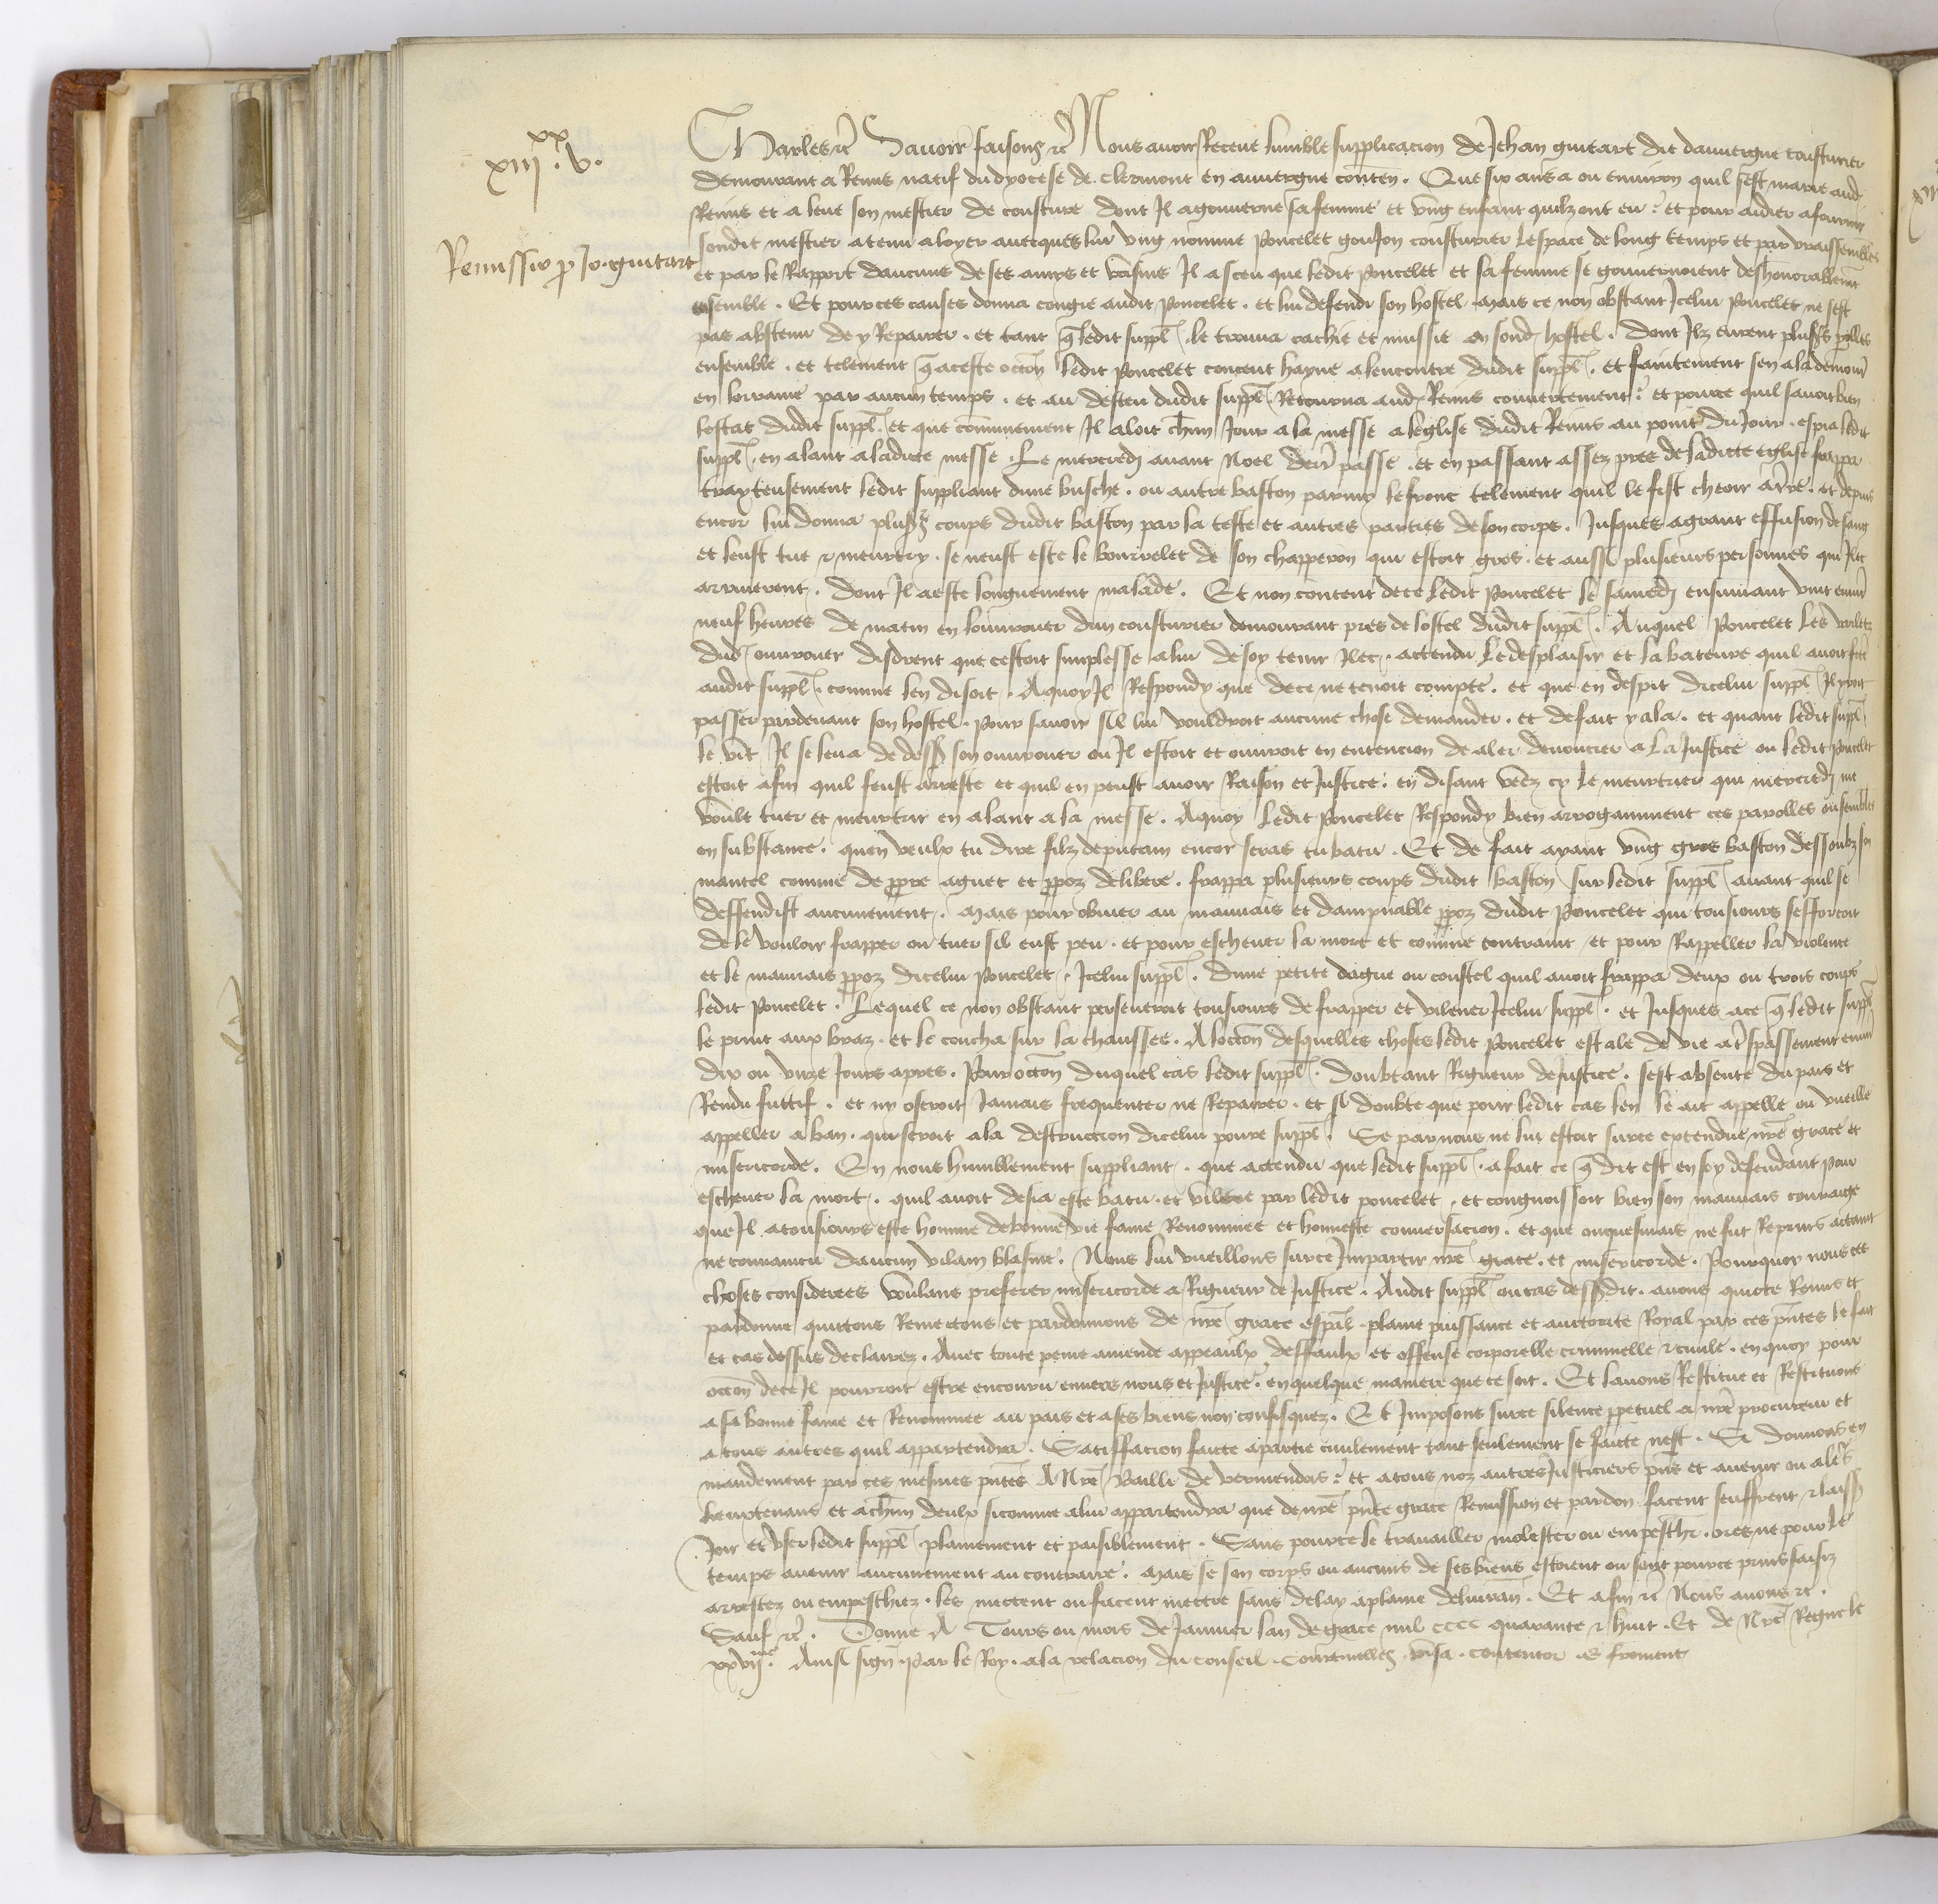 xx
xiii . v.
Remissio p Jo. guitart
Charles etc Savoir faisons etc Nous avoir Receue lumble supplicacion de Jehan guitart dit dauvergne cousturier
demourant a Reims natif du dyocese de Clermont en auvergne conten. Que six ans a ou environ quil sest marie aud
Reims et a leue son mestier de cousture dont Il a gouverne sa femme et ung enfant quilz ont eu. et pour aidier a fournir
sondit mestier a tenu a loyer avecques lui ung nomme Poncelet goujon cousturier lespace de long temps et par vraissembles
et par le Rapport daucuns de ses amys et voisins Il a sceu que ledit Poncelet et sa femme se gouvernoient deshonorablement
ensemble . Et pour ces causes donna congie audit Poncelet . et lui defendi son hostel . Mais ce non obstant Icelui Poncelet ne sest
pas abstenu de y Repairer . et tant q ledit suppl . le trouva cachie et mussie en sond hostel . dont Ilz eurent plusrs parolles
ensemble . et telement q a ceste occon ledit Poncelet conceut hayne alencontre dudit suppl . et faintement sen ala demourer
en lorraine par aucun temps . et au desceu dudit suppl Retourna aud Reims couvertement . et pource quil savoit bien
lestat dudit suppl . et que communement Il aloit chun Jour a la messe a leglise dudit Reims au point du Jour . espia ledit
suppl . en alant a ladicte messe . Le mercredi avant Noel derr passe . et en passant assez pres de ladicte eglise frappa
traytreusement ledit suppliant dune busche . ou autre baston parmy le front telement quil le fist cheoir a terre . et depuis
encor lui donna plusrs coups dudit baston par la teste et autres parties de son corps . Jusques a grant effusion de sang
et leust tue et meurtry . se neust este le bourrelet de son chapperon qui estoit gros . et aussi plusieurs personnes qui Ilec
arriverent . dont Il a este longuement malade . Et non content de ce ledit Poncelet le samedi ensuivant vint environ
neuf heures de matin en louvrouer dun cousturier demourant pres de lostel dudit suppl . Auquel Poncelet les varletz
dud ouvrouer disdrent que cestoit simplesse a lui de soy tenir Ilec . attendu le desplaisir et la bateure quil avoit fcte
audit suppl . comme len disoit . A quoy Il Respondy que de ce ne tenoit compte . et que en despit dicelui suppl Il yroit
passer pardevant son hostel . pour savoir sil lui vouldroit aucune chose demander . et de fait y ala . et quant ledit suppl
le vit Il se leva de dessus son ouvrouer ou Il estoit et ouvroit en entencion de aler denoncier a la Justice ou ledit Poncelet
estoit afin quil feust arreste et quil en peust avoir Raison et Justice . en disant veez cy le meurtrier qui mercredi me
voult tuer et meurtrir en alant a la messe . A quoy ledit Poncelet Respondy bien arrogamment ces parolles ou sembles
en substance . quen veulx tu dire filz de putain encor seras tu batu . Et de fait ayant ung gros baston dessoubz son
mantel comme de ppre aguet et ppoz delibere . frappa plusieurs coups dudit baston sur ledit suppl avant quil se
deffendist aucunement . Mais pour obvier au mauvais et dampnable ppoz dudit Poncelet qui tousiours sefforcoit
de le vouloir frapper ou tuer sil eust peu . et pour eschever la mort et comme contraint et pour Rappeller la violence
et le mauvais ppoz dicelui Poncelet . Icelui suppl . dune petite dague ou coustel quil avoit frappa deux ou trois coups
ledit Poncelet . Lequel ce non obstant perseveroit tousiours de frapper et vilener Icelui suppl . et Jusques a ce q ledit suppl
le print aux braz . et le coucha sur la chaussee . A loccon desquelles choses ledit Poncelet est ale de vie a trspassement environ
dix ou unze Jours apres . Pour occon duquel cas ledit suppl . doubtant Rigueur de Justice . sest absente du pais et
Rendu fuitif . et ny oseroit Jamais frequenter ne Repairer . et si doubte que pour ledit cas len le ait appelle ou vueille
appeller a ban . qui seroit a la destruccion dicelui povre suppl . Se par nous ne lui estoit surce extendue nre grace et
misericorde . En nous humblement suppliant . que attendu que ledit suppl . a fait ce q dit est en soy defendant pour
eschever la mort . quil avoit desia este batu . et vilene par ledit poncelet . et congnoissoit bien son mauvais couraige
que Il a tousiours este homme de bonne vie fame Renommee et honneste conversacion . et que oncquesmais ne fut Reprins attaint
ne convaincu daucun vilain blasme . Nous lui vueillons surce Impartir nre grace . et misericorde . Pourquoy nous ces
choses considerees voulans preferer misericorde a Rigueur de Justice . Audit suppl ou cas dessusdit . avons quicte Remis et
pardonne quittons Remettons et pardonnons de nre grace espal . plaine puissance et auctorite Royal par ces pntes le fait
et cas dessus declairez . Avec toute peine amende appeaulx deffaulx et offense corporelle criminelle et civile . en quoy pour
occon de ce Il pourroit estre encouru envers nous et Justice . en quelque maniere que ce soit . Et lavons Restitue et Restituons
a sa bonne fame et Renommee au pais et a ses biens non confisquez . Et Imposons surce silence ppetuel a nre procureur et
a tous autres quil appartendra . Satiffacion faicte a partie civilement tant seulement se faicte nest . Si donnons en
mandement par ces mesmes pntes A Nre Bailli de vermendois . et a tous noz autres Justiciers pns et avenir ou a leurs
lieuxtenans et a chun deulx sicomme a lui appartendra que de nre pnte grace Remission et pardon facent seuffrent et laissent
Joir et user ledit suppl plainement et paisiblement . Sans pource le travailler molester ou empeschr . ores ne pour le
temps avenir aucunement au contraire . Mais se son corps ou aucuns de ses biens estoient ou sont pource prins saisiz
arrestez ou empeschiez . les mettent ou facent mettre sans delay a plaine delivran . Et afin etc Nous avons etc .
Sauf etc . Donne A Tours ou mois de Janvier lan de grace mil cccc quarante et huit . Et de Nre Regne le
xxviie . Ainsi sign . Par le Roy . a la relacion du conseil . Courcuelles . visa . contentor . E froment